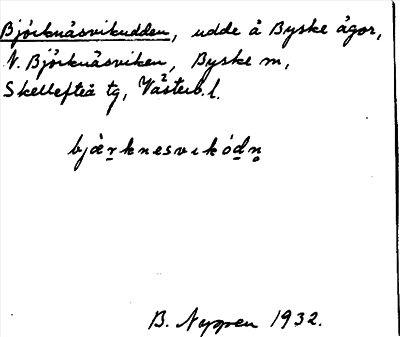 Björknäsvikudden, udde å Byske ägor,
V. Björknäsviken, Byske sn,
Skellefteå tg, Västerb. l.
bjä̀r̠knesvikód̠n̥
B. Nyppen 1932.